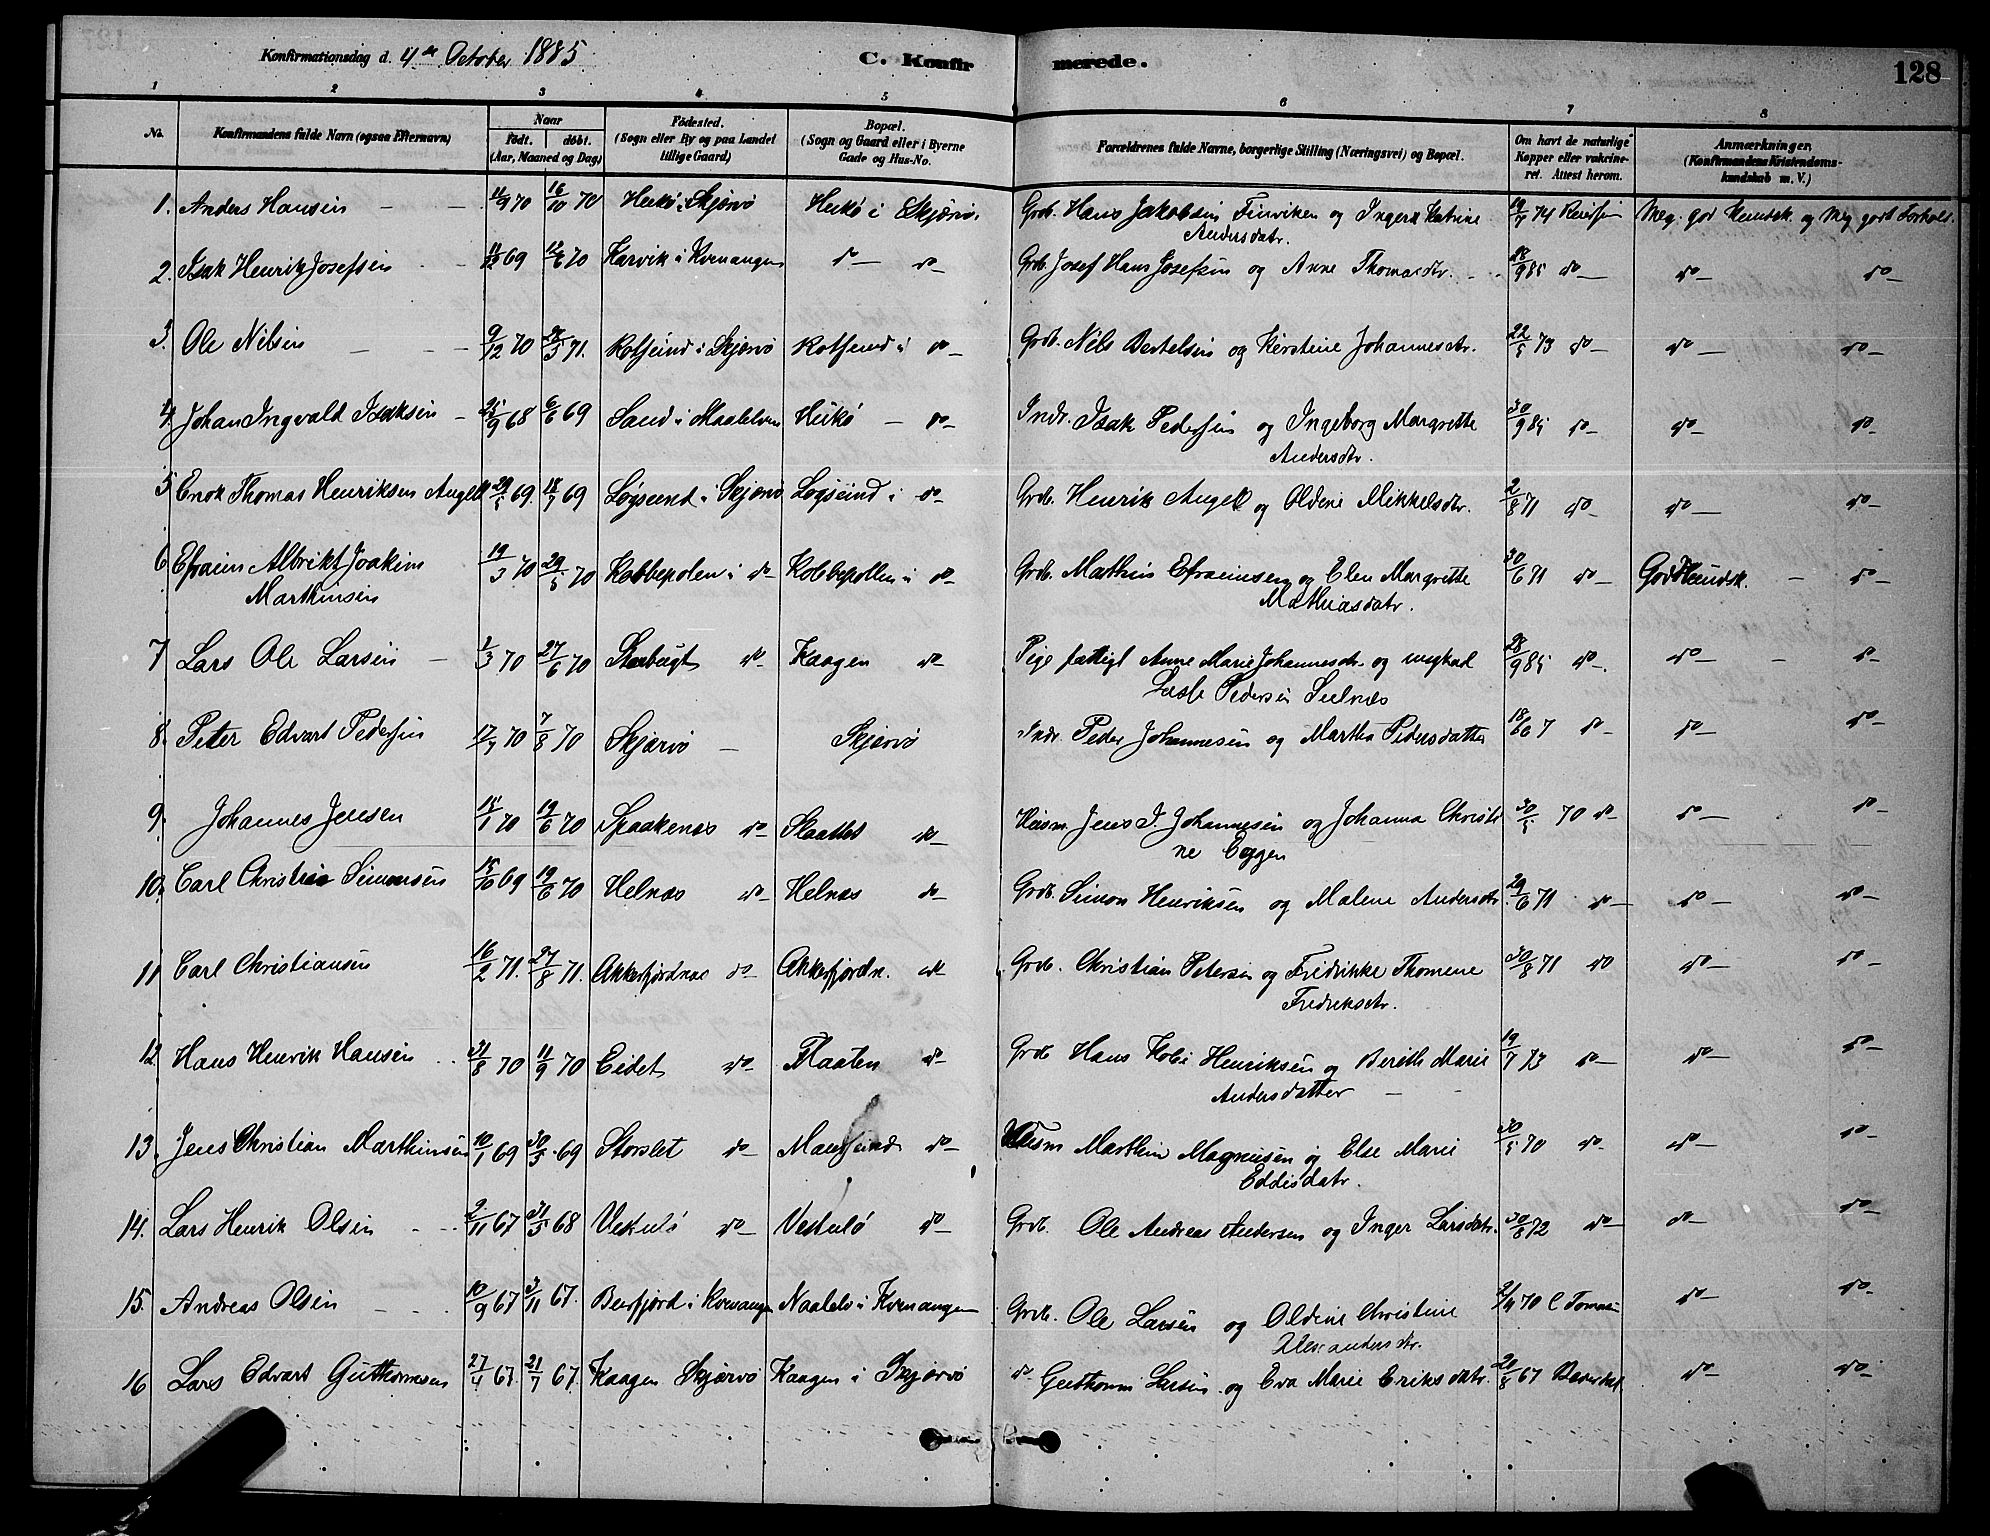 Konfirmationsdag d. 4de October 1885. C. Konfirmerede. 128
1 2 3 4 5 6 7 8
No. Konfirmandens fulde Navn (ogsaa Efternavn) Naar født. døbt. (Aar, Maaned og Dag) Fødested. (Sogn eller By og paa Landet tillige Gaard) Bopæl. (Sogn og Gaard eller i Byerne Gade og Hus-No. Forældrenes fulde Navne, borgerlige Stilling (Næringsvei) og Bopæl. Om havt de naturlige Kopper eller vakcineret. Attest herom. Anmærkninger, (Konfirmandens Kristendomskundskab m. V.)
1. Anders Hansen 16/10 70 Hukø i Skjærvø Hukø i Skjærvø. Grdb. Hans Jakobsen Finviken og Inger Katrine 74 Meg. god Kundsk. og Meg godt Forhold.
Andersdatr.
2. Isak Henrik Josefsen 69 70 Karvik i Kvenangen do do Grdb. Josef Hans Josefsen og Anne Thomasdtr. 28/9 85 do do do
3. Ole Nilsen 9/12 70 71. Rotsund i Skjærvø Rotsund i do Grdb. Nils Bertelsen og Kerstine Johannesdtr. 22/5 73 do do do
4. Johan Ingvald Isaksen 25/9 68 6/6 69 Sand i Maalelven Hukø do Indr. Isak Pedersen og Ingeborg Margrette 30/9 85 do do do
Andersdtr.
5 Enok Thomas Henriksen Angell 29/5 69. 18/7 69 Løgsund i Skjærvø Løgsund i do Grdb. Henrik Angell og Oldine Mikkelsdtr. 2/8 71 do do do
6 Efraim Albrikt Joakim 19/3 70 29/5 70 Kobbepolen i do Kobbepollen i do Grdb. Marthin Efraimsen og Elen Margrette 30/6 71 do God Kundsk. do
Marthinsen Mathiasdatr.
7 Lars Ole Larsen 1/3 70 27/6 70 Storbugt do Kaagen do Pige fattigl Anne Marie Johannesdtr og ungkarl 28/9 85 do do do
Pedersen
8. Peter Edvart Pedersen 17/7 70 7/8 70 Skjærvø Skjærvø Indr. Peder Johannesen og Martha Pedersdatter do do do
9. Johannes Jensen 15/1 70 19/6 70 Spaakenæs do Slaattet do Husm. Jens J. Johannesen og Johanna Christi 30/5 70 do do do
ne Eggen
10. Carl Christian Simonsen 69 19/6 70 Helnæs do Helnæs do Grdb. Simon Henriksen og Malene Andersdtr 29/6 71 do do do
11 Carl Christiansen 16/2 71. 27/8 71. Akkarfjordnæs do Akkarfjordn. do Grdb. Christian Petersen og Fredrikke Thomine 30/8 71 do do do
Fredriksdtr.
12 Hans Henrik Hansen 31/8 70 11/9 70 Eidet do Flaaten do Grdb Hans Henriksen og Berith Marie 73 do do do
Andersdatter
13. Jens Christian Marthinsen 10/1 69 30/5 69 Storslet do do Husm Marthin Magnusen og Else Marie 30/5 70 do do do
Eddisdatr.
14. Lars Henrik Olsen 2/11 67 31/5 68 do do Grdb. Ole Andreas Andersen og Inger Larsdatr. 30/8 72 do do do
15. Andreas Olsen 10/9 67 3/11 67. i Kvenangen i Kvenangen Grdb. Ole Larsen og Oldine Christine 70 do do
Alexandersdtr.
16 Lars Edvart Guttormsen 27/4 67 21/7 67. Kaagen Skjærvø Kaagen i Skjærvø do Guthorm Larsen og Eva Marie Eriksdatr. 67 do do